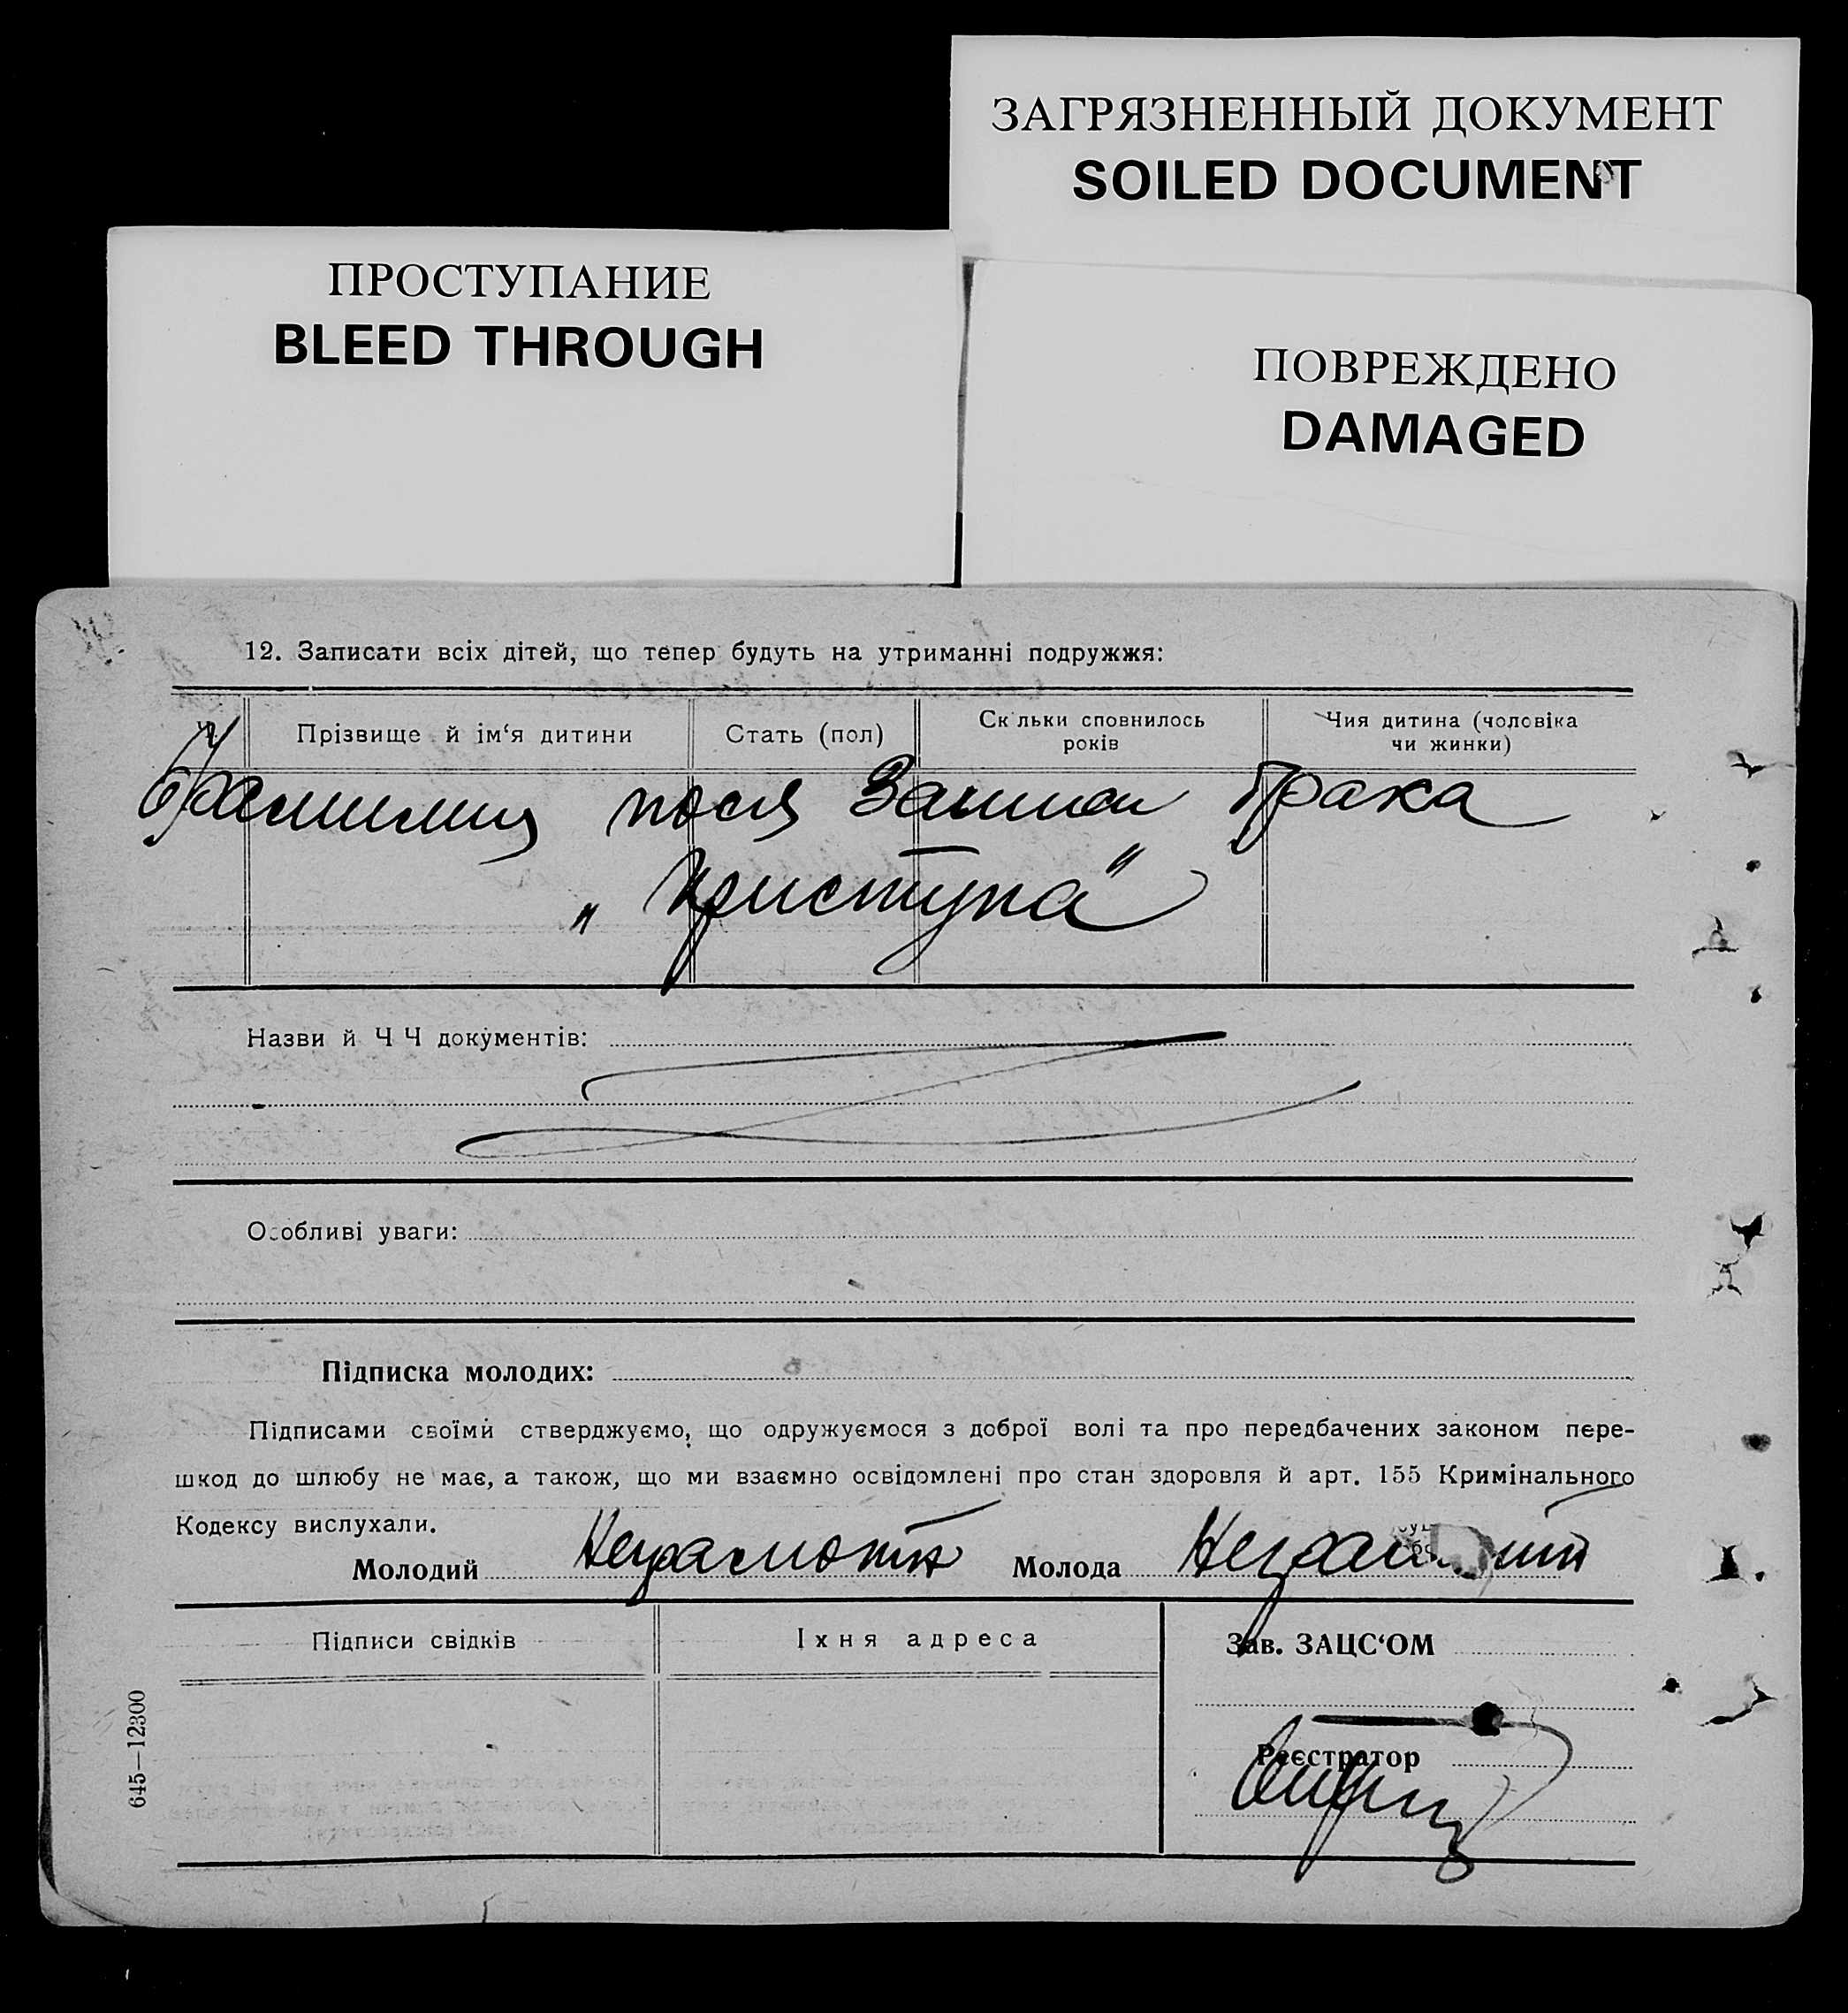 ЗАГРЯЗНЕННЫЙ ДОКУМЕНТ
SOILED DOCUMENT
ПРОСТУПАНИЕ
BLEED THROUGH
ПОВРЕЖДЕНО
DAMAGED
12. Записати всіх дітей, що тепер будуть на утриманні подружжя:
Ч. Прізвище й ім‘я дитини Стать (пол) Скільки сповнилось років Чия дитина (чоловіка чи жинки)
Фамилия после Записи брака
„Приступа"
Назви й Ч Ч документів:
Особливі уваги:
Підписка молодих:
Підписами своїми стверджуємо, що одружуємося з доброї волі та про передбачених законом пере-
шкод до шлюбу не має, а також, що ми взаємно освідомлені про стан здоровля й арт. 155 Кримінального
Кодексу вислухали.
Молодий Неграмотн Молода
Підписи свідків Їхня адреса Зав. ЗАЦС‘ОМ
Реєстратор
645—12300